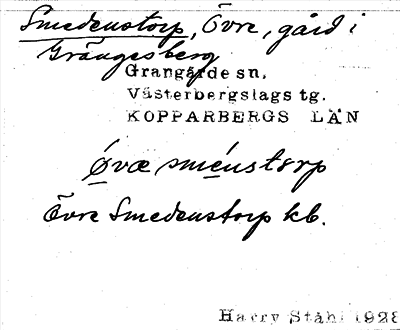 Smedenstorp, Övre, gård i
Grängesberg
Grangärde sn.
Västerbergslags tg.
KOPPARBERGS LÄN
øvæ smenstorp
Övre Smedenstorp kb.
Harry Ståhl 1928